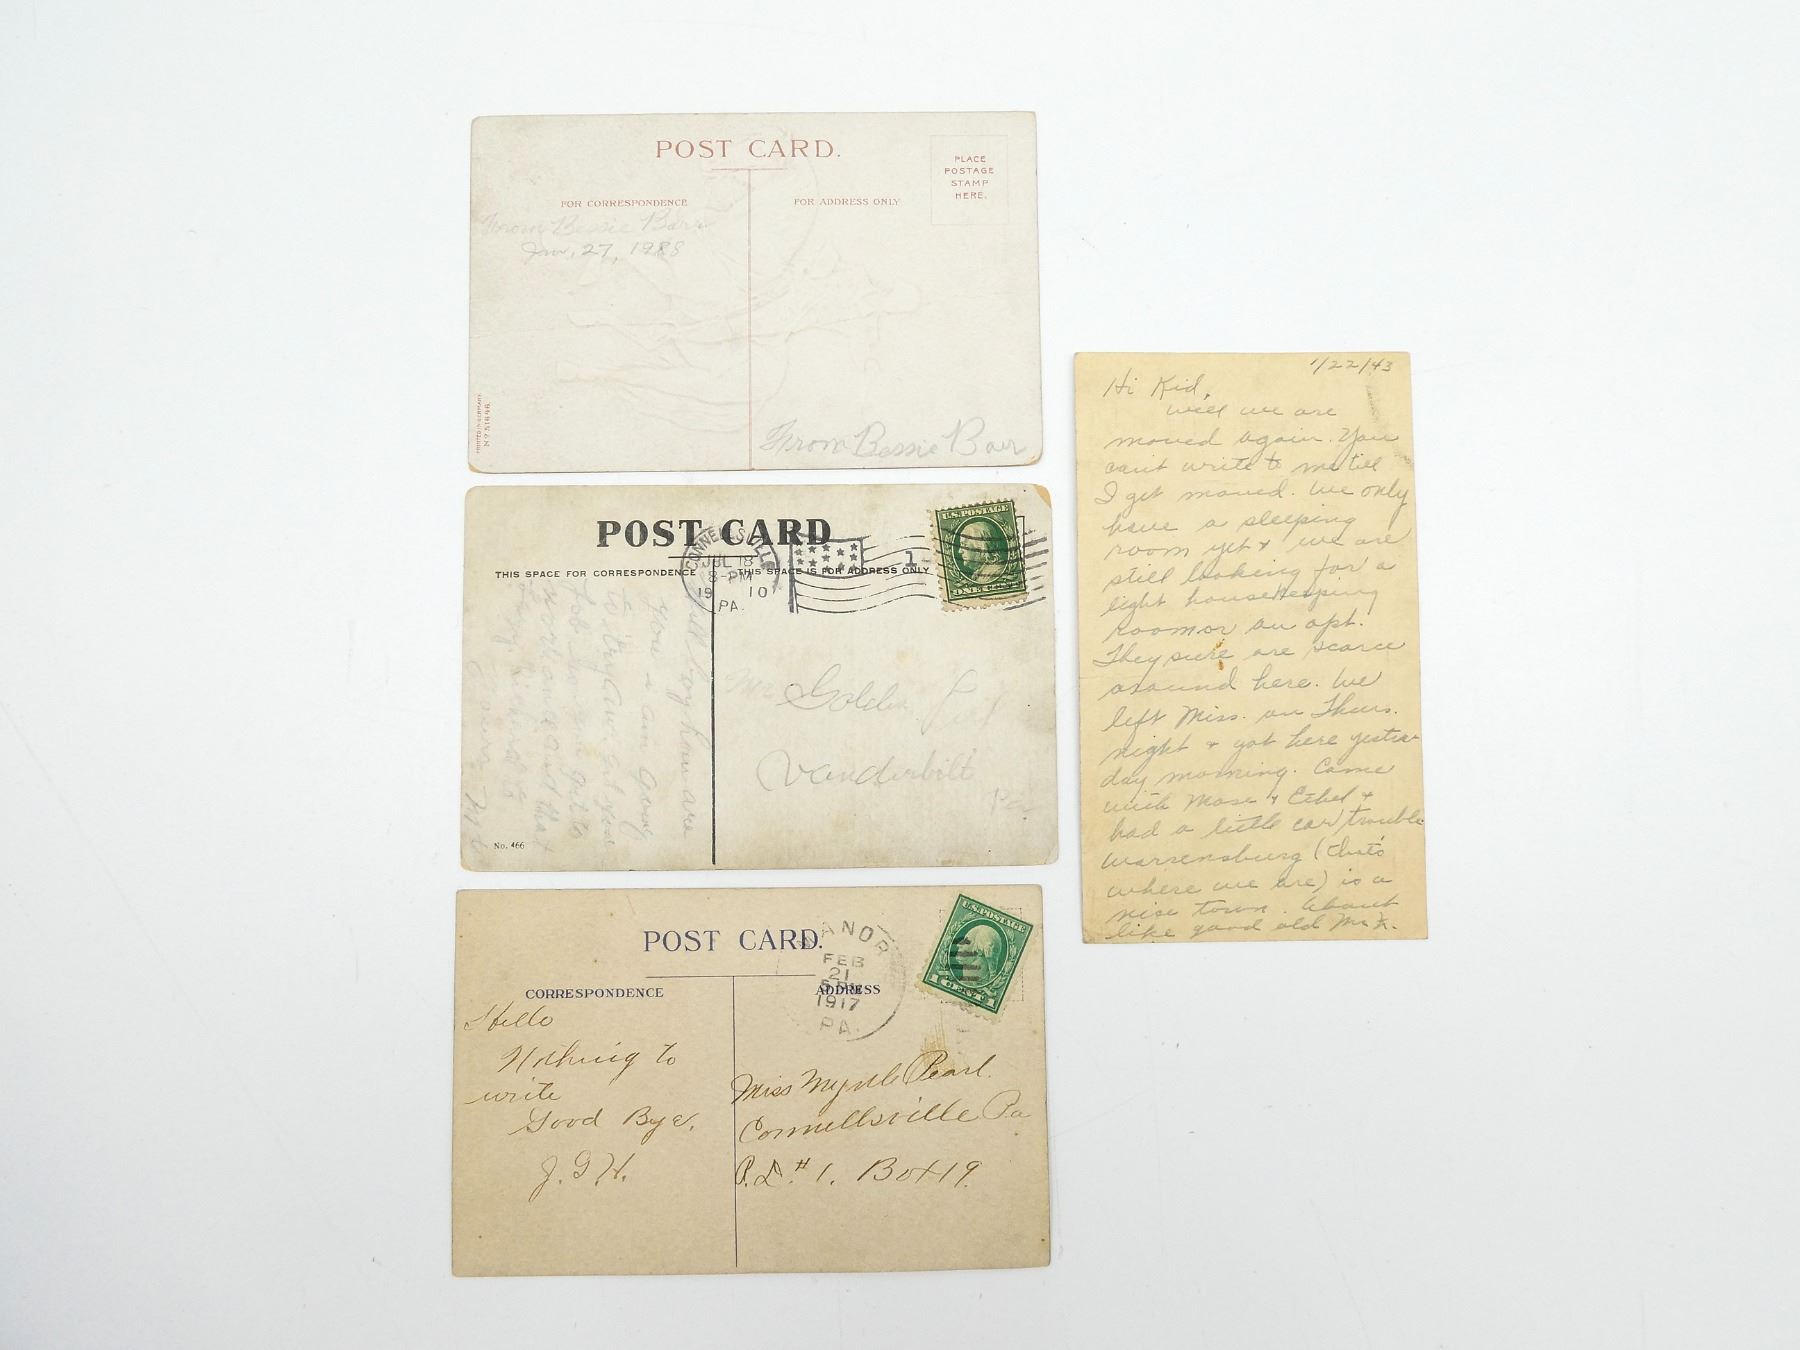 POST CARD.
PLACE
POSTAGE
STAMP
HERE.
FOR CORRESPONDENCE
FOR ADDRESS ONLY
From Bessie Barr
Jan. 27, 1988
From Bessie Barr
PRINTED IN GERMANY.
No 51646
POST CARD
THIS SPACE FOR CORRESPONDENCE
THIS SPACE IS FOR ADDRESS ONLY
CONNELLSVILLE
JUL 18
8-PM
19 10
PA.
1
U.S. POSTAGE
ONE CENT
you i am going
to stay
job
Golden
Vanderbilt
Pa.
No. 466
POST CARD.
CORRESPONDENCE
ADDRESS
MANOR
FEB
21
1917
PA.
U.S. POSTAGE
1 CENT 1
Hello
Nothing to
write
Good Bye.
J. G. H.
Miss Myrtle Pearl.
Connellsville Pa
R.D. # 1. Box 19.
1/22/43
Hi Kid,
Well we are
moved again. You
can't write to me till
I get moved. We only
have a sleeping
room yet & we are
still looking for a
light housekeeping
room or an apt.
They sure are scarce
around here. We
left Miss. on Thurs.
night & got here yester
day morning. Came
with Mose & Ethel &
had a little car trouble
Warrensburg (that's
where we are) is a
nice town. About
like good old Mt.